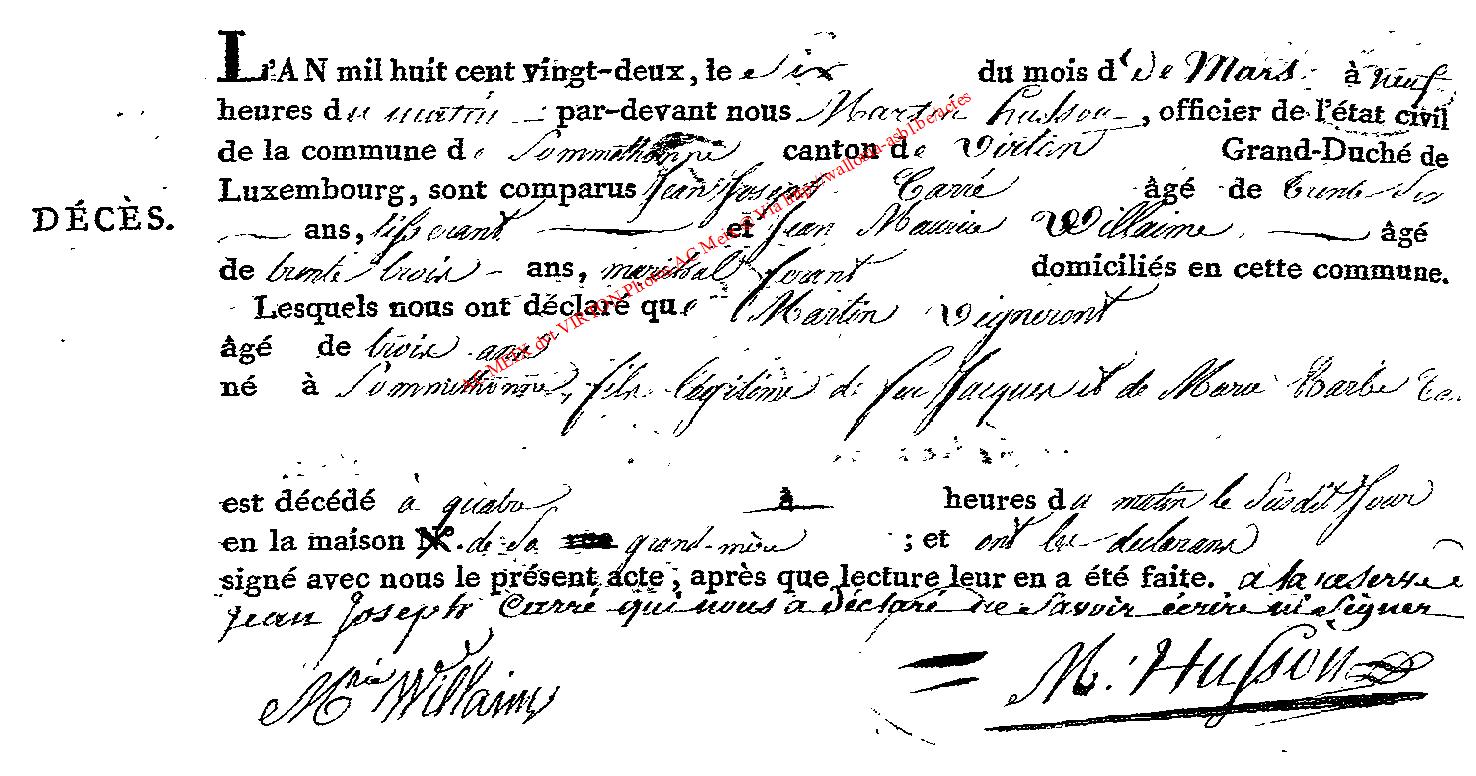 L'AN mil huit cent vingt-deux, le Six du mois d' de Mars à neuf
heures du matin par-devant nous Martin husson, officier de l'état civil
de la commune de Sommethonne canton de Virton Grand-Duché de
Luxembourg, sont comparus Jean Joseph Carré âgé de trente Six
DÉCÈS.
ans, tisserant et Jean Maurice Willaime âgé
de trente trois ans, marichal ferant domiciliés en cette commune.
Lesquels nous ont déclaré que Martin Vigneront
âgé de trois ans
né à Sommethonne, fils légitime de feu Jacques et de Marie Barbe
est décédé à quatre à heures du matin le Susdit Jour
en la maison N.º de Sa grand-mère ; et ont les declarans
signé avec nous le présent acte, après que lecture leur en a été faite. a la reserve
Jean Joseph Carré qui nous a déclaré ne Savoir écrire ni Signer
Mrie Willaime M. Husson
AC METX dvt VIRTON Photos AC Meix © Via http/wallonia-asbl.be/actes